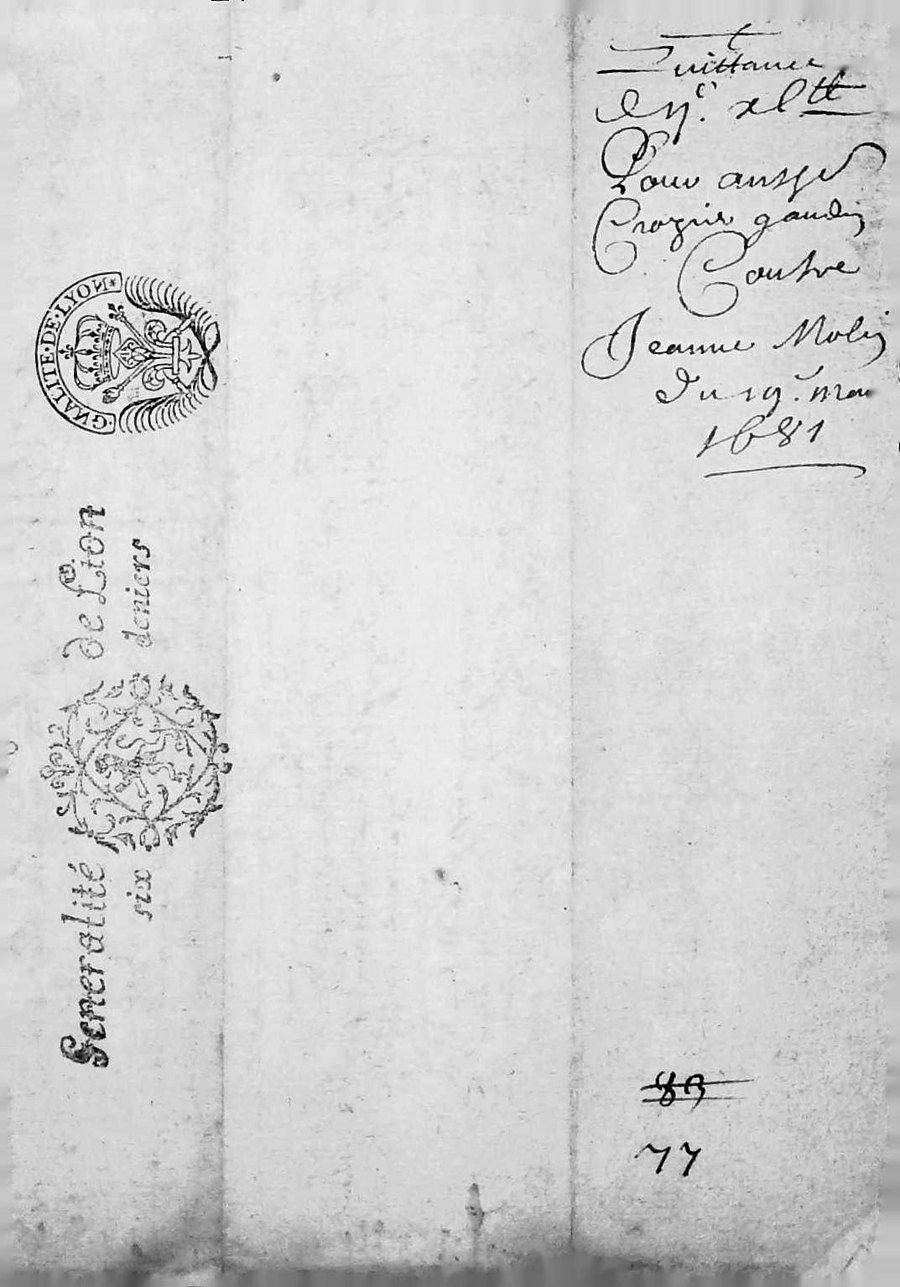 Quittance
de ijc xl tt
Pour
Crozier gaudin
Contre
Jeanne Molin
Du 19e. mai
1681
83
77
*G͞NALITE·DE·LYON*
Generalité de Lion
six deniers